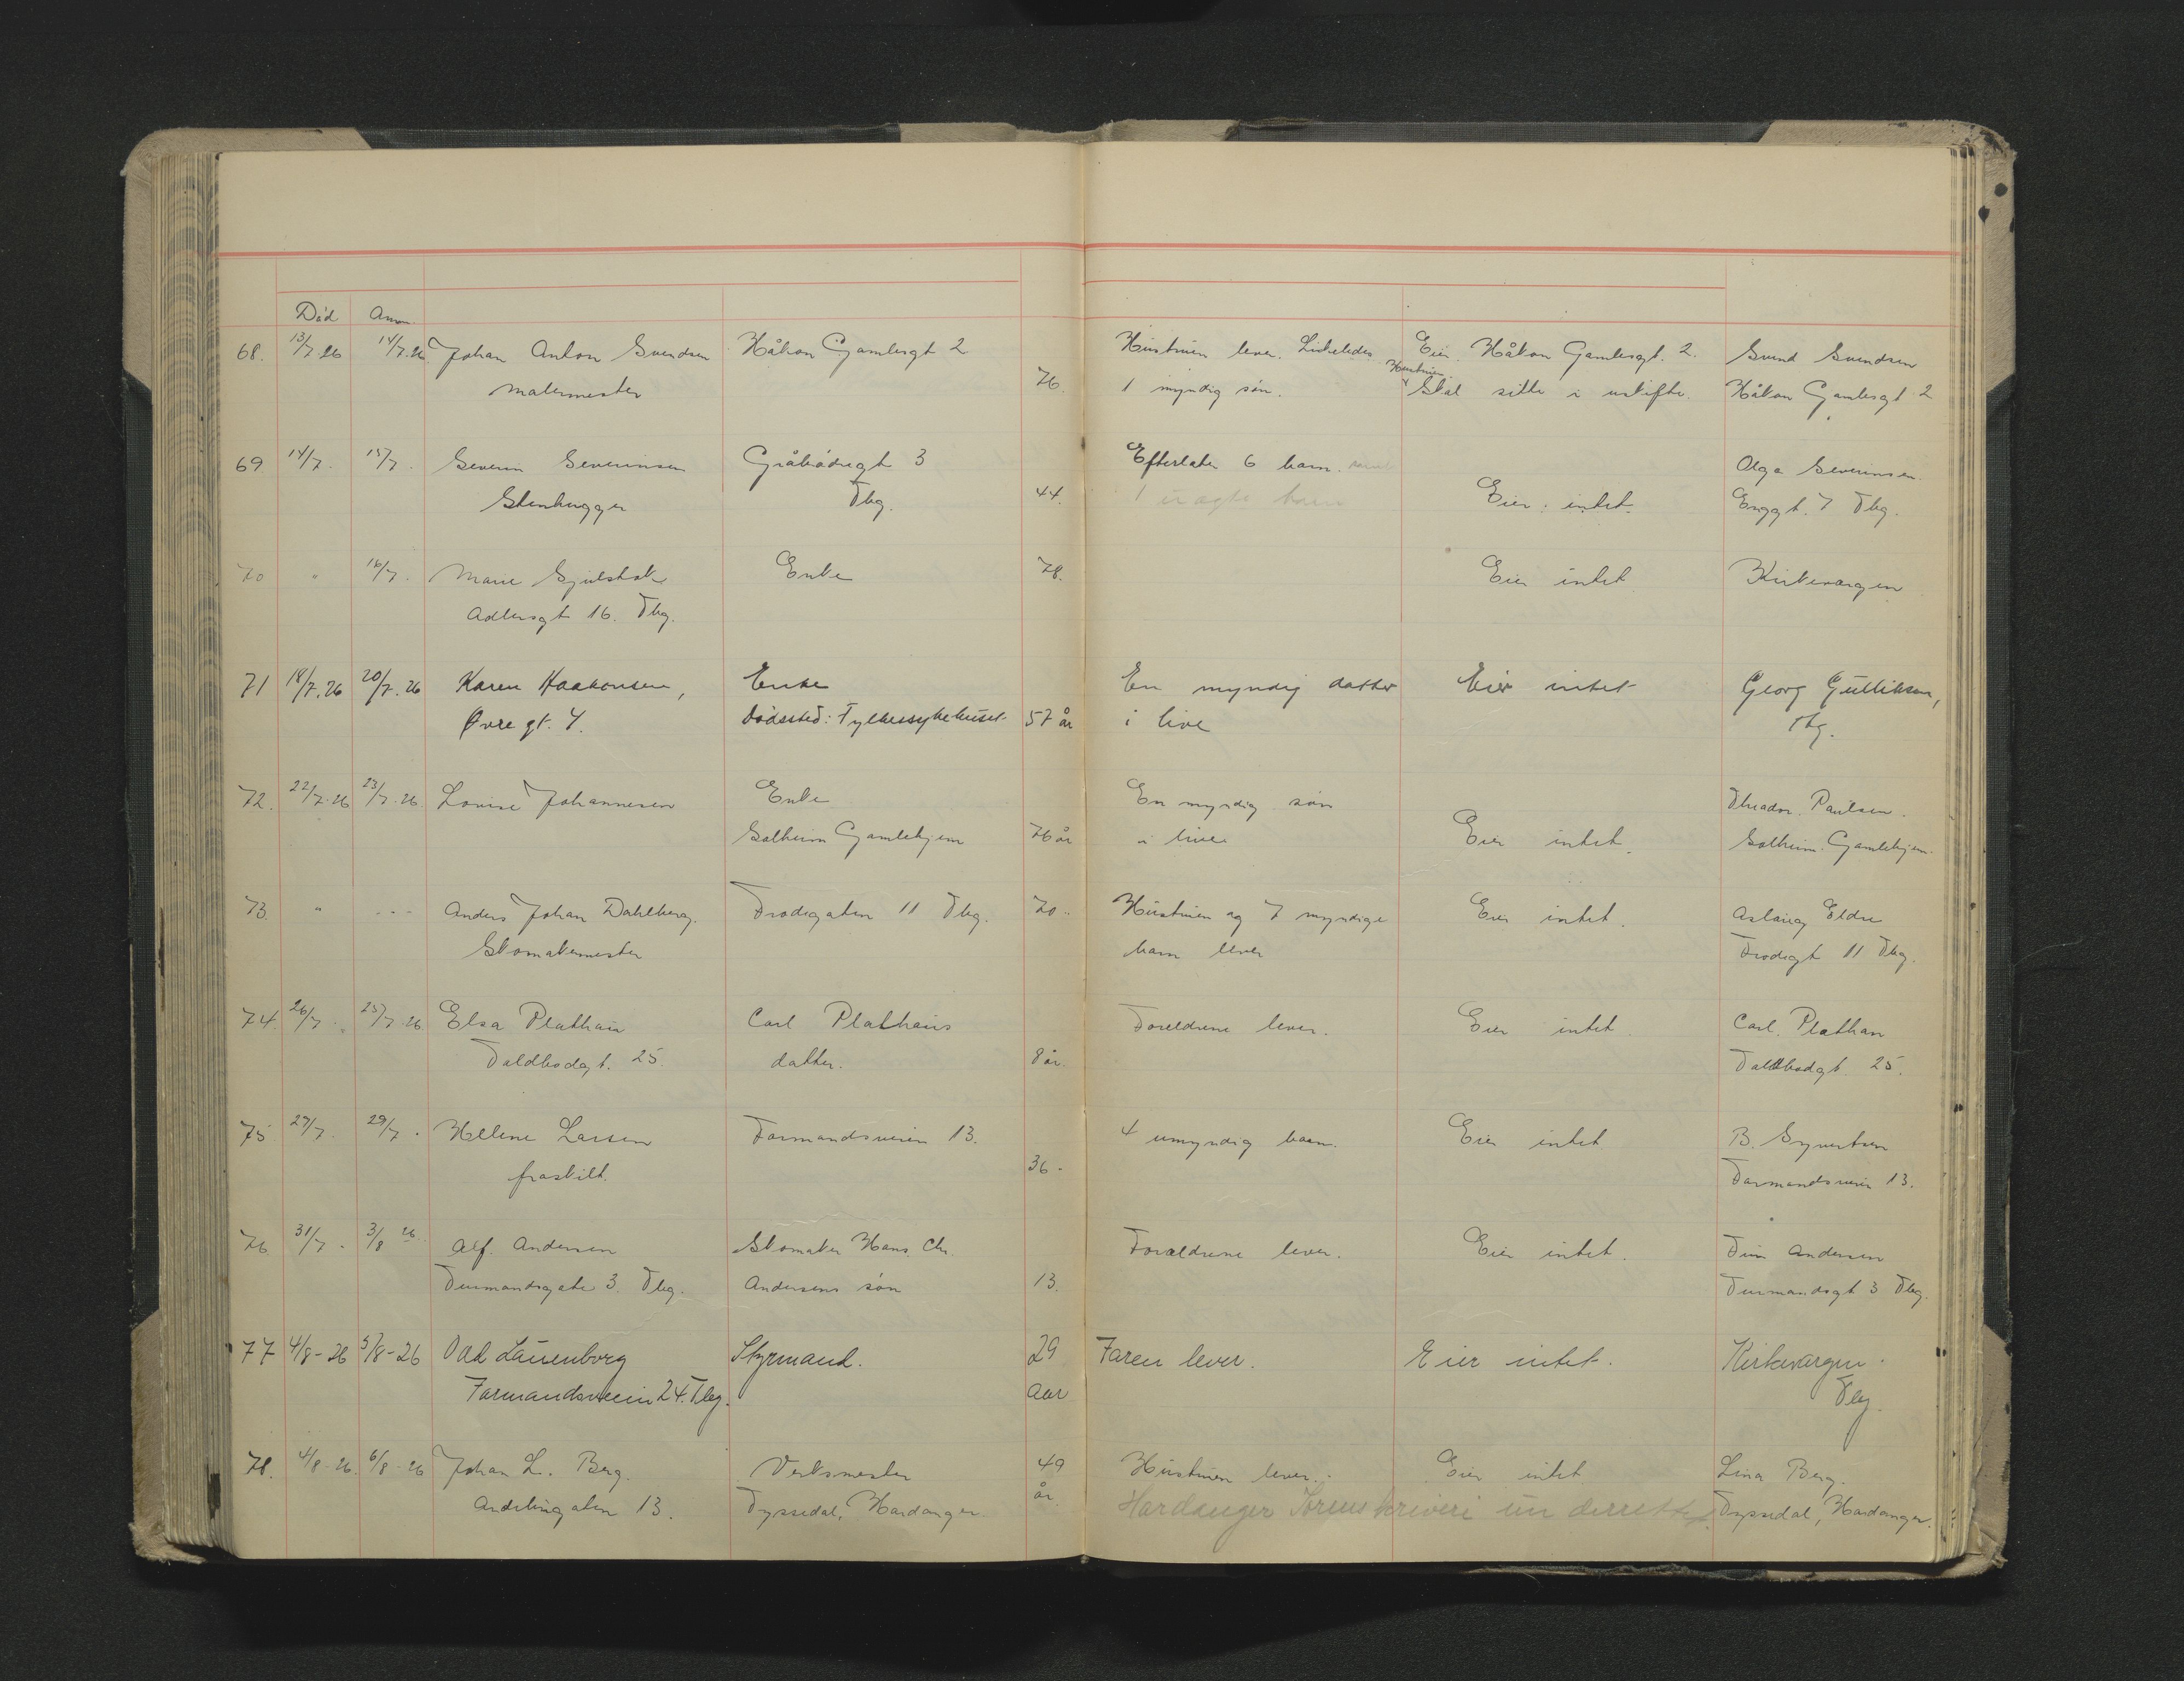 Död Anm.
68. 13/7.26 14/7.26 Johan Anton Svendsen Håkon Gamlesgt 2 Hustruen lever. Likeledes Eier Håkon Gamlesgt. 2. Svend Svendsen
Malermester 76. 1 myndig sön. Hustruen Skal sitte i uskifte. Håkon Gamlesgt 2
69 14/7. 15/7. Severin Severinsen Gråbödregt 3 Efterlater 6 barn. Olga Severinsen
Stenhugger Tbg. 44. 1 uægte barn Eier intet. Enggt. 7 Tbg.
70 " 16/7. Marie Enke 78. Eier intet Kirkevergen
Adlersgt 16. Tbg.
71 18/7.26 20/7.26 Karen Haakonsen, Enke En myndig datter Eier intet Georg Gulliksen,
Övre gt. 4. Dödssted: Fylkessykehuset 57 år i live Tbg.
72. 22/7.26 23/7.26 Louise Johannesen Enke En myndig sön Theador Paulsen.
Solheim Gamlehjem 76 år i live Eier intet. Solheim Gamlehjem.
73. " --- Anders Johan Dahlberg. Frodegaten 11 Tbg. 70. Hustruen og 7 myndige Eier intet. Aslaug Eldre
Skomakermester barn lever Frodegt 11 Tbg.
74 26/7. 25/7.26 Elsa Plathan Carl Plathans Foreldrene lever. Eier intet. Carl Plathan
Toldbodgt. 25. datter. 8 år. Toldbodgt 25.
75 27/7. 29/7. Hellene Larsen Farmandsveien 13. 4 umyndig barn. Eier intet B. Syvertsen
fraskilt. 36. Farmandsveien 13.
76 31/7. 3/8 26. Alf. Andersen Skomaker Hans Chr. Foreldrene lever. Eier intet. Andersen
Turmandsgate 3. Tbg. Andersens sön 13. Turmandsgt 3 Tbg.
77 4/8-26 5/8-26 Odd Lauenborg Styrmand. 29 Faren lever. Eier intet. Kirkevergen.
Farmandsveien 24. Tbg. Aar Tbg.
78. 4/8-26. 6/8-26 Johan L. Berg. Verksmester 49 Hustruen lever. Eier intet Lina Berg.
Andebugaten 13. Tyssedal, Hardanger år. Hardanger Sorenskriveri un derrettet Tyssedal, Hardanger.